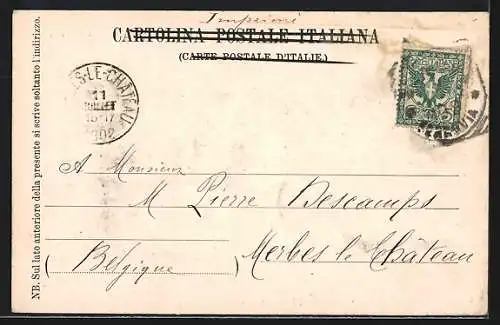 Imprimé
CARTOLINA POSTALE ITALIANA
(CARTE POSTALE D'ITALIE.)
ES-LE-CHATEAU
11
JUILLET
15-17
1902
A Monsieur
M Pierre Descamps
Merbes le Château
(Belgique)
NB. Sul lato anteriore della presente si scrive soltanto l'indirizzo.